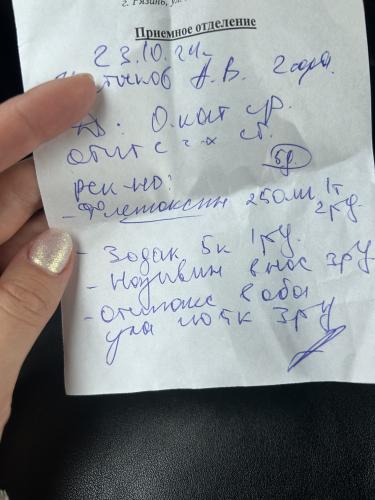 г. Рязань, ул.
Приемное отделение
23.10.24г.
А. В. 2 года.
Ds: О. кат ср.
отит с 2-х ст.
5д.
рек-но:
- Флемоксин 250мл 1т
2р/д.
- Зодак 5к 1р/д.
- Називин в нос 3р/д
- Отипакс в оба
уха по 4к 3р/д